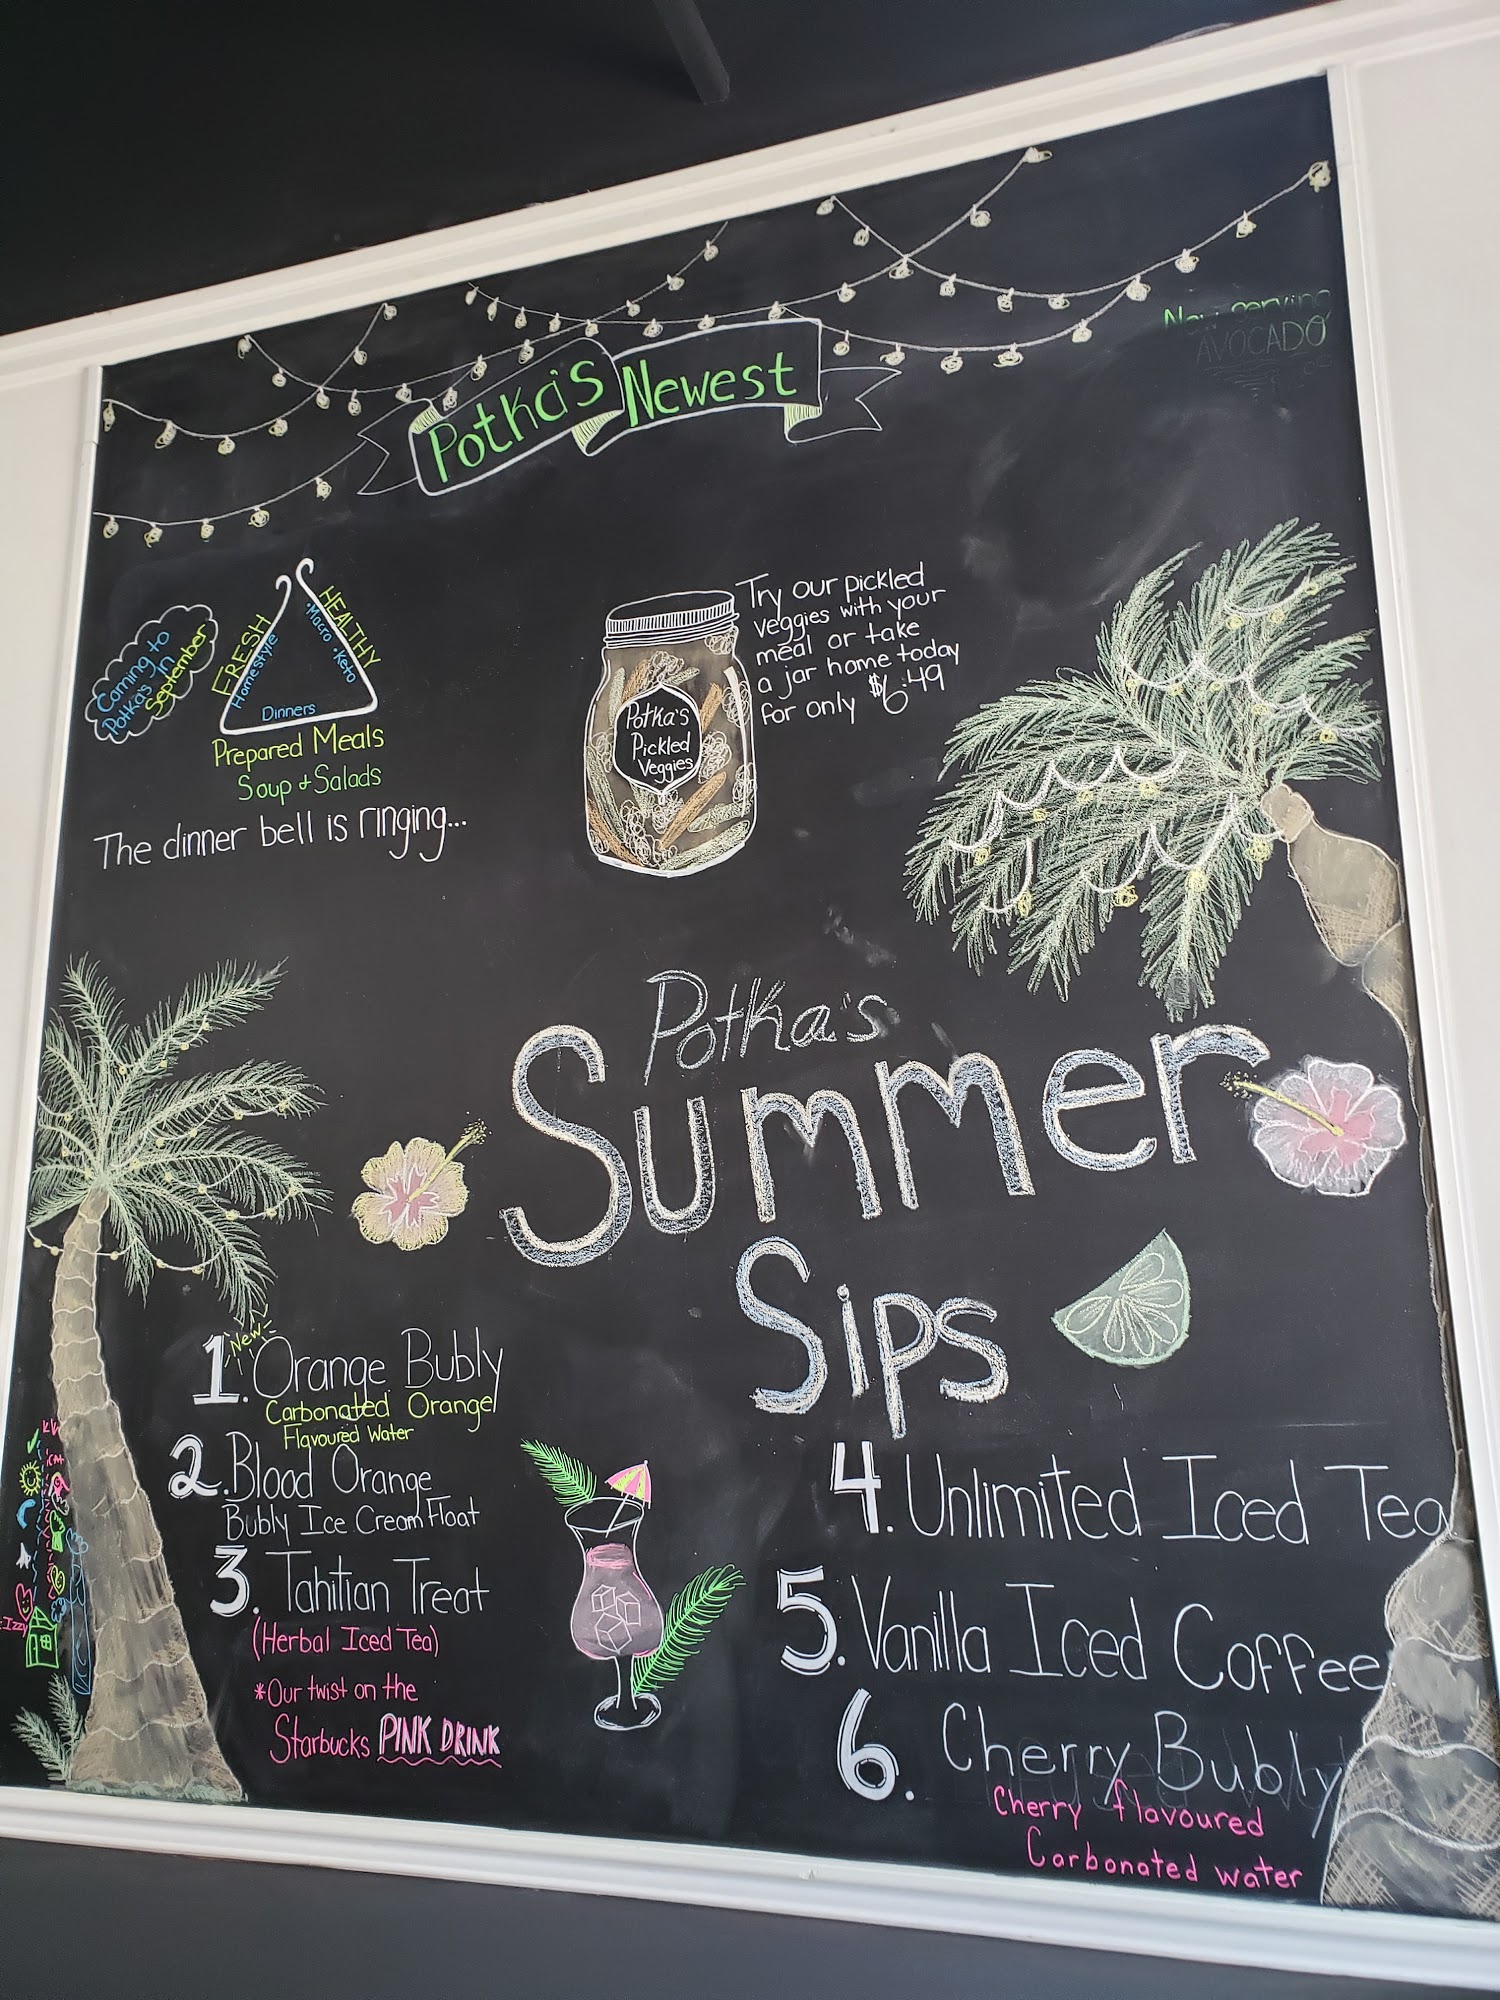 Now serving
AVOCADO
Potka's Newest
Coming to
Potka's in
September
FRESH
HEALTHY
Homestyle
•Macro •Keto
Dinners
Prepared Meals
Soup & Salads
The dinner bell is ringing...
Try our pickled
veggies with your
meal or take
a jar home today
for only $6.49
Potka's
Pickled
Veggies
Potka's
Summer
Sips
New
1. Orange Bubly
Carbonated Orange
Flavoured Water
2. Blood Orange
Bubly Ice Cream Float
3. Tahitian Treat
(Herbal Iced Tea)
*Our twist on the
Starbucks PINK DRINK
4. Unlimited Iced Tea
5. Vanilla Iced Coffee
6. Cherry Bubly
Cherry flavoured
Carbonated water
Izzy